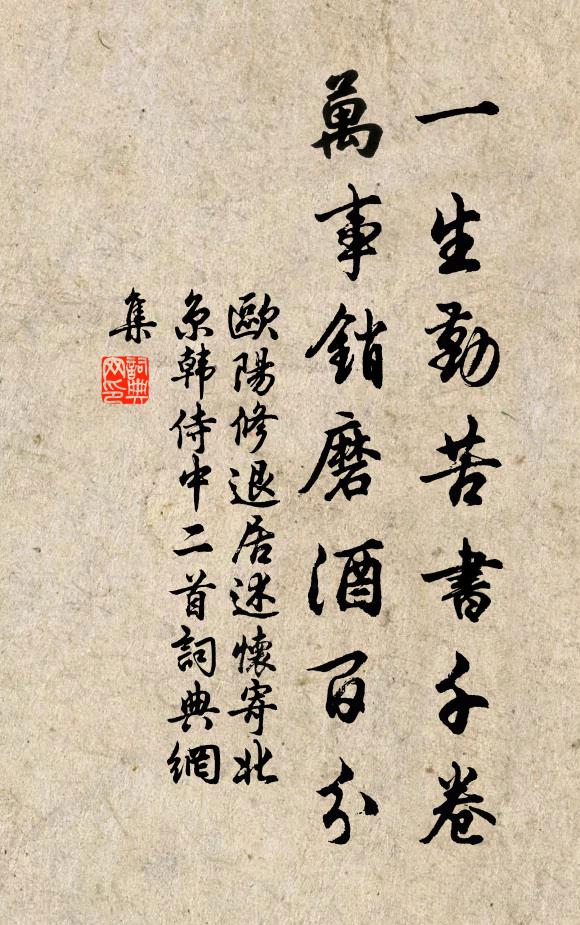 一生勤苦書千卷
萬事銷磨酒百分
歐陽修退居述懷寄北
京韩侍中二首詞典網
集
詞典
网印